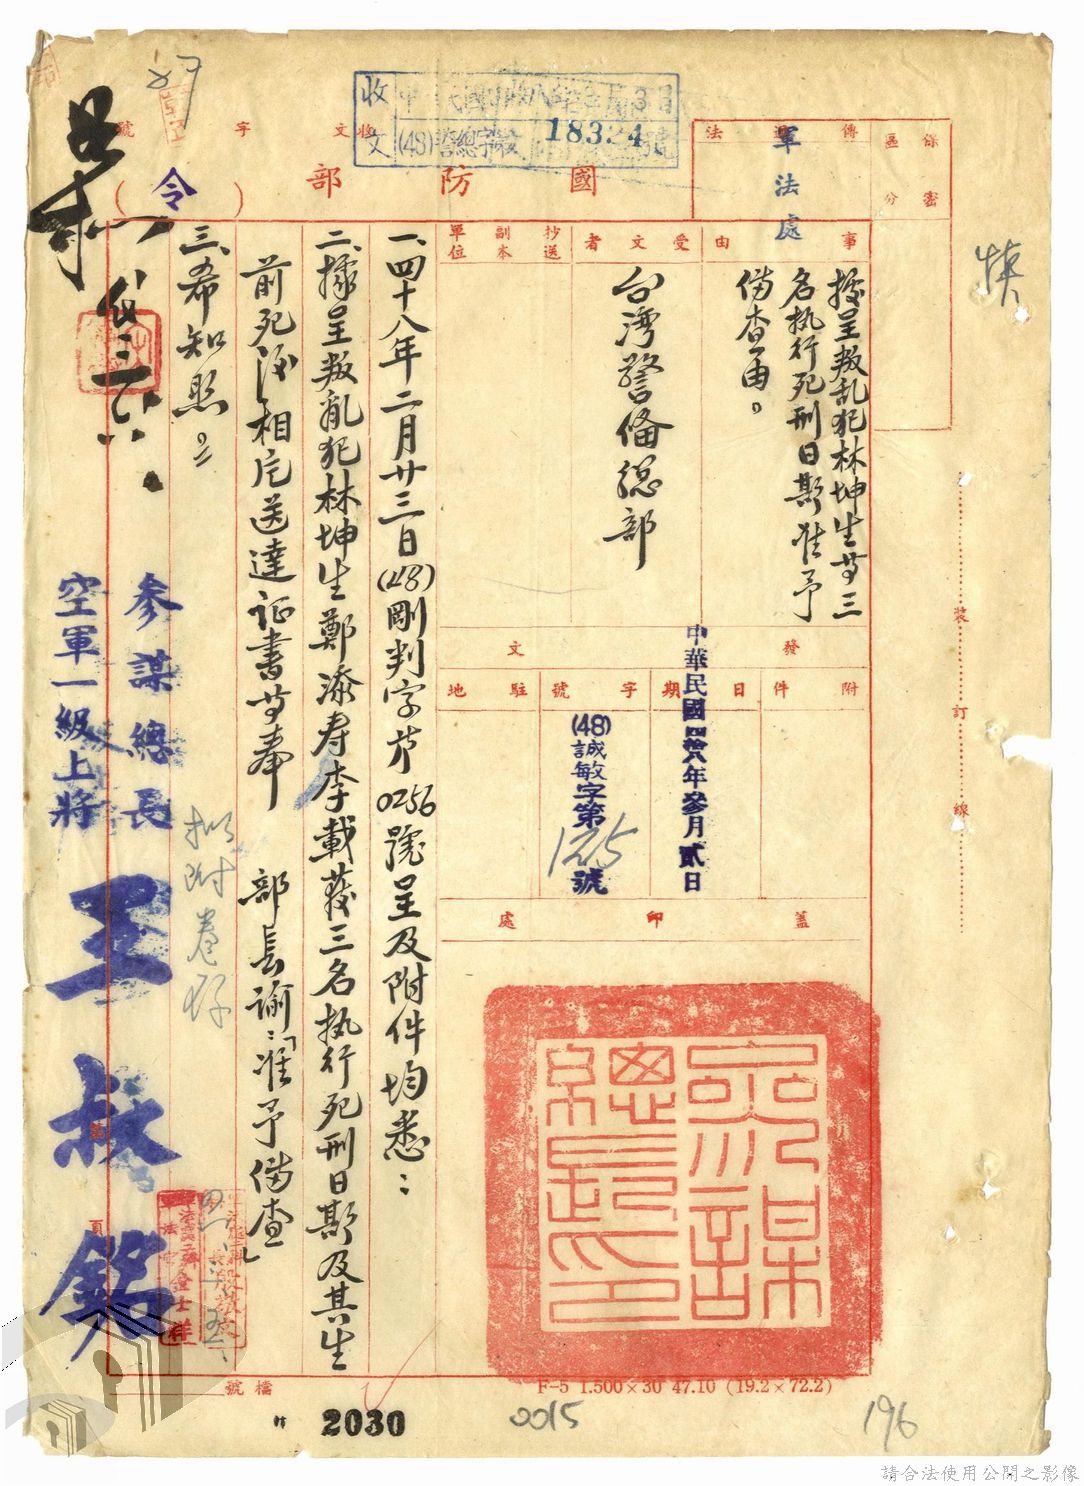 保密
區分
傳遞法
軍法處
收文
(48)警總字收
18324號
收文字號
國防部
(令)
事由
據呈叛乱犯林坤生等三
名执行死刑日期准予
俻查由。
受文者
台湾警俻総部
抄送副本單位
發文
附件
日期
中華民國四拾八年叁月貳日
字號
(48)誠敏字第
125
號
駐地
蓋印處
參謀總長之印
一、四十八年二月廿三日(48)剛判字苐0256號呈及附件均悉：
二、據呈叛亂犯林坤生鄭添寿李載葰三名执行死刑日期及其生
前死後相片送達证書等奉　部長諭：「准予俻查」
三、希知照。
參謀總長
空軍一級上將
王叔銘
拟附卷存
金士祥
頁
裝訂線
檔號
F-5 1.500×30 47.10 (19.2×72.2)
2030
0015
196
請合法使用公開之影像